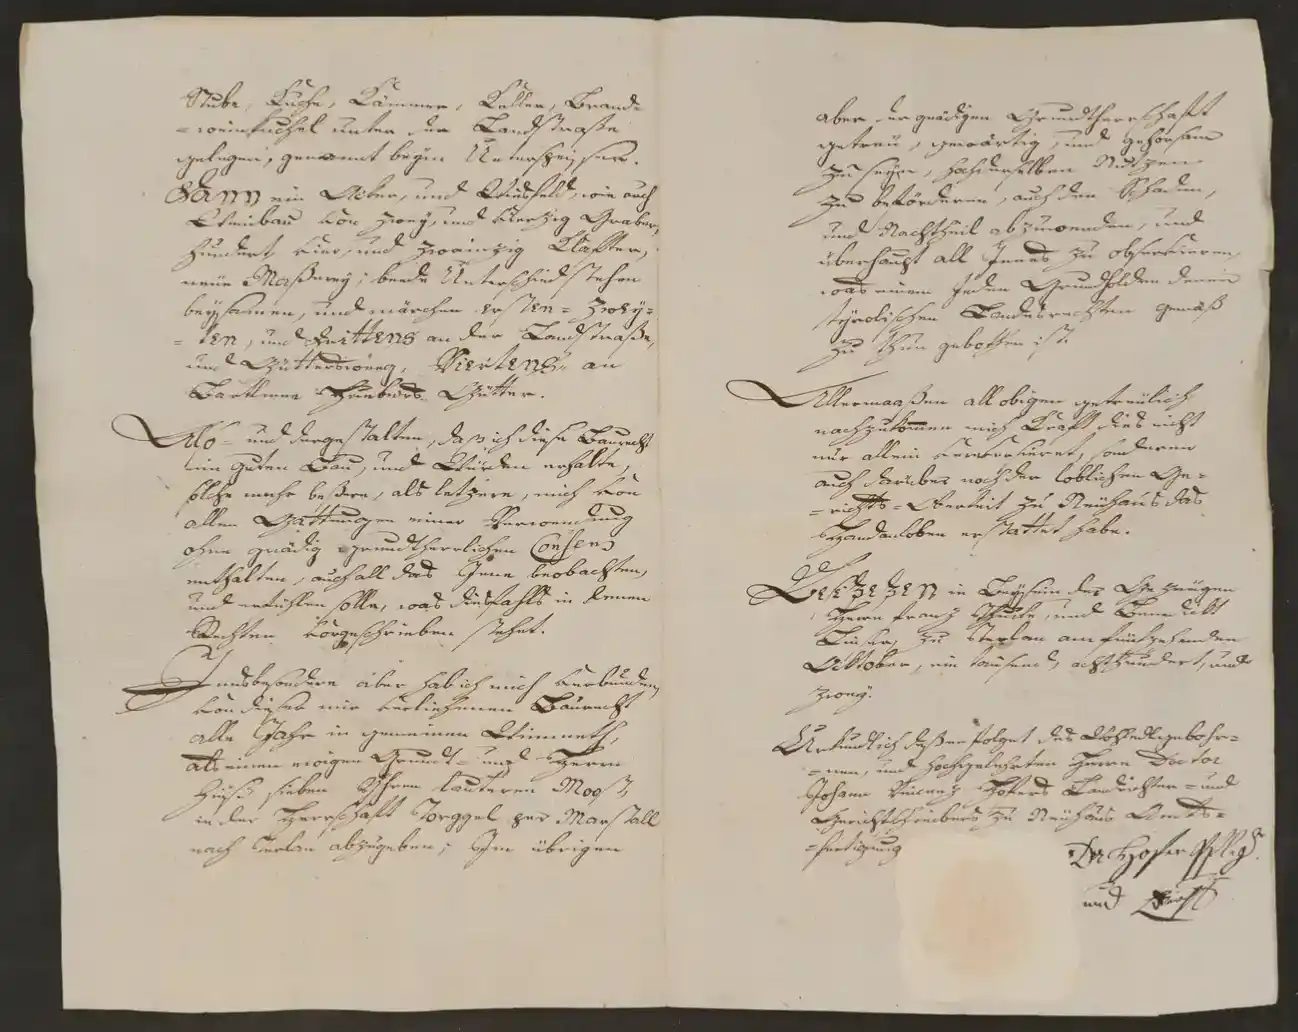 Stube, Kuche, Kammer, Keller, Brand-
=weinkuchel unter der Landstraße
gelegen, genannt beym Unterhauser.
Dann ein Acker, und Wiesfeld, wie auch
Weinbau von zwey, und vierzig Graber,
hundert vier, und zwainzig Klafter,
neue Maßerey; beede Unterschied stehen
beysamen, und märchen ersten= zwey-
=ten, und Drittens an der Landstraße,
und Gütterweeg, Viertens an
Güter.
Also und dergestalten, daß ich diese Baurecht
im guten Bau, und Würden erhalte,
solche mehr beßere, als letzere, mich von
allen Gattungen einer Verwendung
ohne gnädig grundtherrlichen Consens
enthalten, auch all das Jene beobachten,
und erfühlen solle, was diesfahls in denen
Rechten vorgeschrieben stehet.
Insbesondere aber hab ich mich verbunden,
von dieser mir verliehenen Baurecht
alle Jahr in gemeinen Wimmeth,
als einen ewigen Grund- und Herrn
sieben Yhren lauteren Most,
in der Herrschaft Torggel per Marstall
nach Terlan abzugeben; Im übrigen
aber der gnädigen Grundtherrschaft
getreu, gewärtig, und gehorsam
zu seyn, hochderselben Nutzen
zu beförderen, auch den Schaden,
und Nachtheil abzuwenden, und
überhaupt all Jenes zu observieren,
was einem jeden Grundholden denen
tyrolischen Landsrechten gemäß
zu thun gebothen ist.
Allermaaßen all obigen getreulich
nachzukommen mich Kraft dies nicht
nur allein reversieret, sonderen
auch darüber nach der loblichen Ge-
=richts= Obrkeit zu Neuhaus das
Handanloben erstattet habe.
Beschehen in Beysein der Gezeugen
Herrn Franz und Benedikt
zu Terlan am fünfzehenden
Oktober, ein tausend, achthundert, und
zwey.
Urkundlich deßen folget des Wohledlgebohr-
=nen, und hochgelehrten Herrn Doctor
Johann Vinzenz Hofers Landrichter= und
Gerichtschreibers zu Neuhaus Amts=
=fertigung
Dr Hofer
und